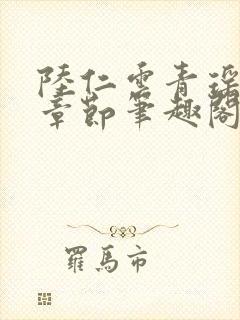 陸仁雲青瑤
章節筆趣閣
羅馬市